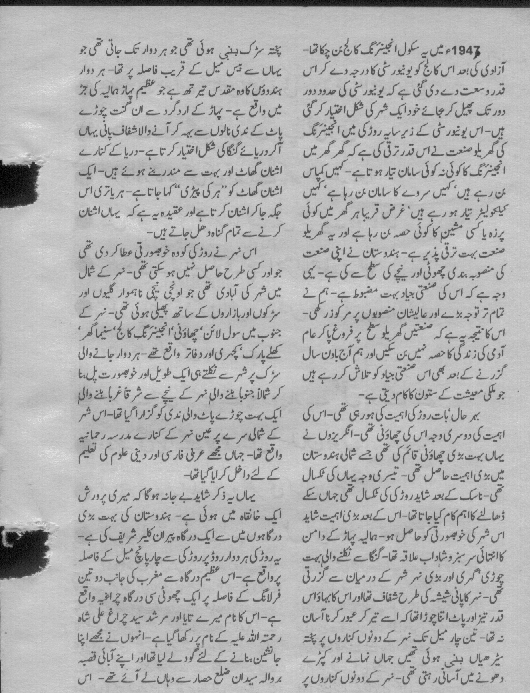 1947ء میں یہ سکول انجینئرنگ کالج بن چکا تھا۔
آزادی کی بعد اس کالج کو یونیورسٹی کا درجہ دے کر اس
قدر وسعت دے دی گئی ہے کہ یونیورسٹی کی حدود دور
دور تک پھیل کر جائے خود ایک شہر کی شکل اختیار کر گئی
ہیں۔ اس یونیورسٹی کے زیر سایہ روڑکی میں انجینئرنگ
کی گھریلو صنعت نے اس قدر ترقی کی ہے کہ گھر گھر میں
انجینئرنگ کا کوئی نہ کوئی سامان تیار ہوتا ہے۔ کہیں کمپاس
بن رہے ہیں' کہیں سروے کا سامان بن رہا ہے' کہیں
کیلکولیٹر تیار ہو رہے ہیں' غرض تقریبا ہر گھر میں کوئی
پرزہ یا کسی مشین کا کوئی حصہ بن رہا ہے اور یہ گھریلو
صنعت بہت ترقی پذیر ہے۔ ہندوستان نے اپنی صنعت
کی منصوبہ بندی چھوٹی اور نیچے کی سطح سے کی ہے۔ یہی
وجہ ہے کہ اس کی صنعتی بنیاد بہت مضبوط ہے۔ ہم نے
تمام تر توجہ بڑے اور عالیشان منصوبوں پر مرکوز رکھی۔
اس کا نتیجہ یہ ہے کہ صنعتیں گھریلو سطح پر فروغ پا کر عام
آدمی کی زندگی کا حصہ نہیں بن سکیں اور ہم آج باون سال
گزرنے کے بعد بھی اس صنعتی بنیاد کو تلاش کر رہے ہیں
جو ملکی معیشت کے ستون کا کام دیتی ہے۔
بہر حال بات روڑکی کی اہمیت کی ہو رہی تھی۔ اس کی
اہمیت کی دوسری وجہ اس کی چھاؤنی تھی۔ انگریزوں نے
یہاں بہت بڑی چھاؤنی قائم کی تھی جسے شمالی ہندوستان
میں بڑی اہمیت حاصل تھی۔ تیسری وجہ یہاں کی ٹکسال
تھی۔ ناسک کے بعد شاید روڑکی کی ٹکسال تھی جہاں سکے
ڈھالنے کا اہم کام کیا جاتا تھا۔ اس کے بعد بڑی اہمیت شاید
اس شہر کی خوبصورتی کو حاصل ہو۔ ہمالیہ پہاڑ کے دامن
کا انتہائی سر سبز و شاداب علاقہ تھا۔ گنگا سے نکلنے والی بہت
چوڑی' گہری اور بڑی نہر شہر کے درمیان سے گزرتی
تھی۔ نہر کا پانی شیشہ کی طرح شفاف تھا اور اس کا بہاؤ اس
قدر تیز اور پاٹ اتنا چوڑا تھا کہ اسے تیر کر عبور کرنا آسان
نہ تھا۔ تین چار میل تک نہر کے دونوں کناروں پر پختہ
سیڑھیاں بنی ہوئی تھیں جہاں نہانے اور کپڑے
دھونے میں آسانی رہتی تھی۔ نہر کے دونوں کناروں پر
پختہ سڑک بنی ہوئی تھی جو ہر دوار تک جاتی تھی جو
یہاں سے بیس میل کے قریب فاصلہ پر تھا۔ ہر دوار
ہندوؤں کا وہ مقدس تیرتھ ہے جو عظیم پہاڑ ہمالیہ کی جڑ
میں واقع ہے۔ پہاڑ کے ارد گرد سے ان گنت چوڑے
پاٹ کے ندی نالوں سے بہہ کر آنے والا شفاف پانی یہاں
آ کر دریائے گنگا کی شکل اختیار کرتا ہے۔ دریا کے کنارے
اشنان گھاٹ اور بہت سے مندر بنے ہوئے ہیں۔ ایک
اشنان گھاٹ کو "ہر کی پیڑی" کہا جاتا ہے۔ ہر یاتری اس
جگہ جا کر اشنان کرتا ہے اور عقیدہ یہ ہے کہ یہاں اشنان
کرنے سے تمام گناہ دھل جاتے ہیں۔
اس نہر نے روڑکی کو وہ خوبصورتی عطا کر دی تھی
جو اور کسی طرح حاصل نہیں ہو سکتی تھی۔ نہر کے شمال
میں شہر کی آبادی تھی جو اونچی نیچی ناہموار گلیوں اور
سڑکوں اور بازاروں کے ساتھ پھیلی ہوئی تھی۔ نہر کے
جنوب میں سول لائن' چھاؤنی' انجینئرنگ کالج' سینما گھر'
کھلے پارک' کچہری اور دفاتر واقع تھے۔ ہر دوار جانے والی
سڑک پر شہر سے نکلتے ہی ایک طویل اور خوبصورت پل بنا
کر شمالاً جنوباً بہنے والی نہر کے نیچے سے شرقاً غرباً بہنے والی
ایک بہت چوڑے پاٹ والی ندی کو گزارا گیا تھا۔ اس شہر
کے شمالی سرے پر عین نہر کے کنارے مدرسہ رحمانیہ
واقع تھا۔ جہاں مجھے عربی فارسی اور دینی علوم کی تعلیم
کے لئے داخل کرایا گیا تھا۔
یہاں یہ ذکر شاید بے جا نہ ہو گا کہ میری پرورش
ایک خانقاہ میں ہوئی ہے۔ ہندوستان کی بہت بڑی
درگاہوں میں سے ایک درگاہ پیران کلیر شریف کی ہے۔
یہ روڑکی ہر دوار روڈ پر روڑکی سے چار پانچ میل کے فاصلہ
پر واقع ہے۔ اس عظیم درگاہ سے مغرب کی جانب دو تین
فرلانگ کے فاصلہ پر ایک چھوٹی سی درگاہ چراغیہ واقع
ہے۔ اس کا نام میرے تایا اور مرشد سید چراغ علی شاہ
رحمتہ اللہ علیہ کے نام پر رکھا گیا ہے۔ انہوں نے مجھے اپنا
جانشین بنانے کے لئے گود لے لیا تھا اور اپنے آبائی قصبہ
بروالہ سیدان ضلع حصار سے وہاں لے آئے تھے۔ اس